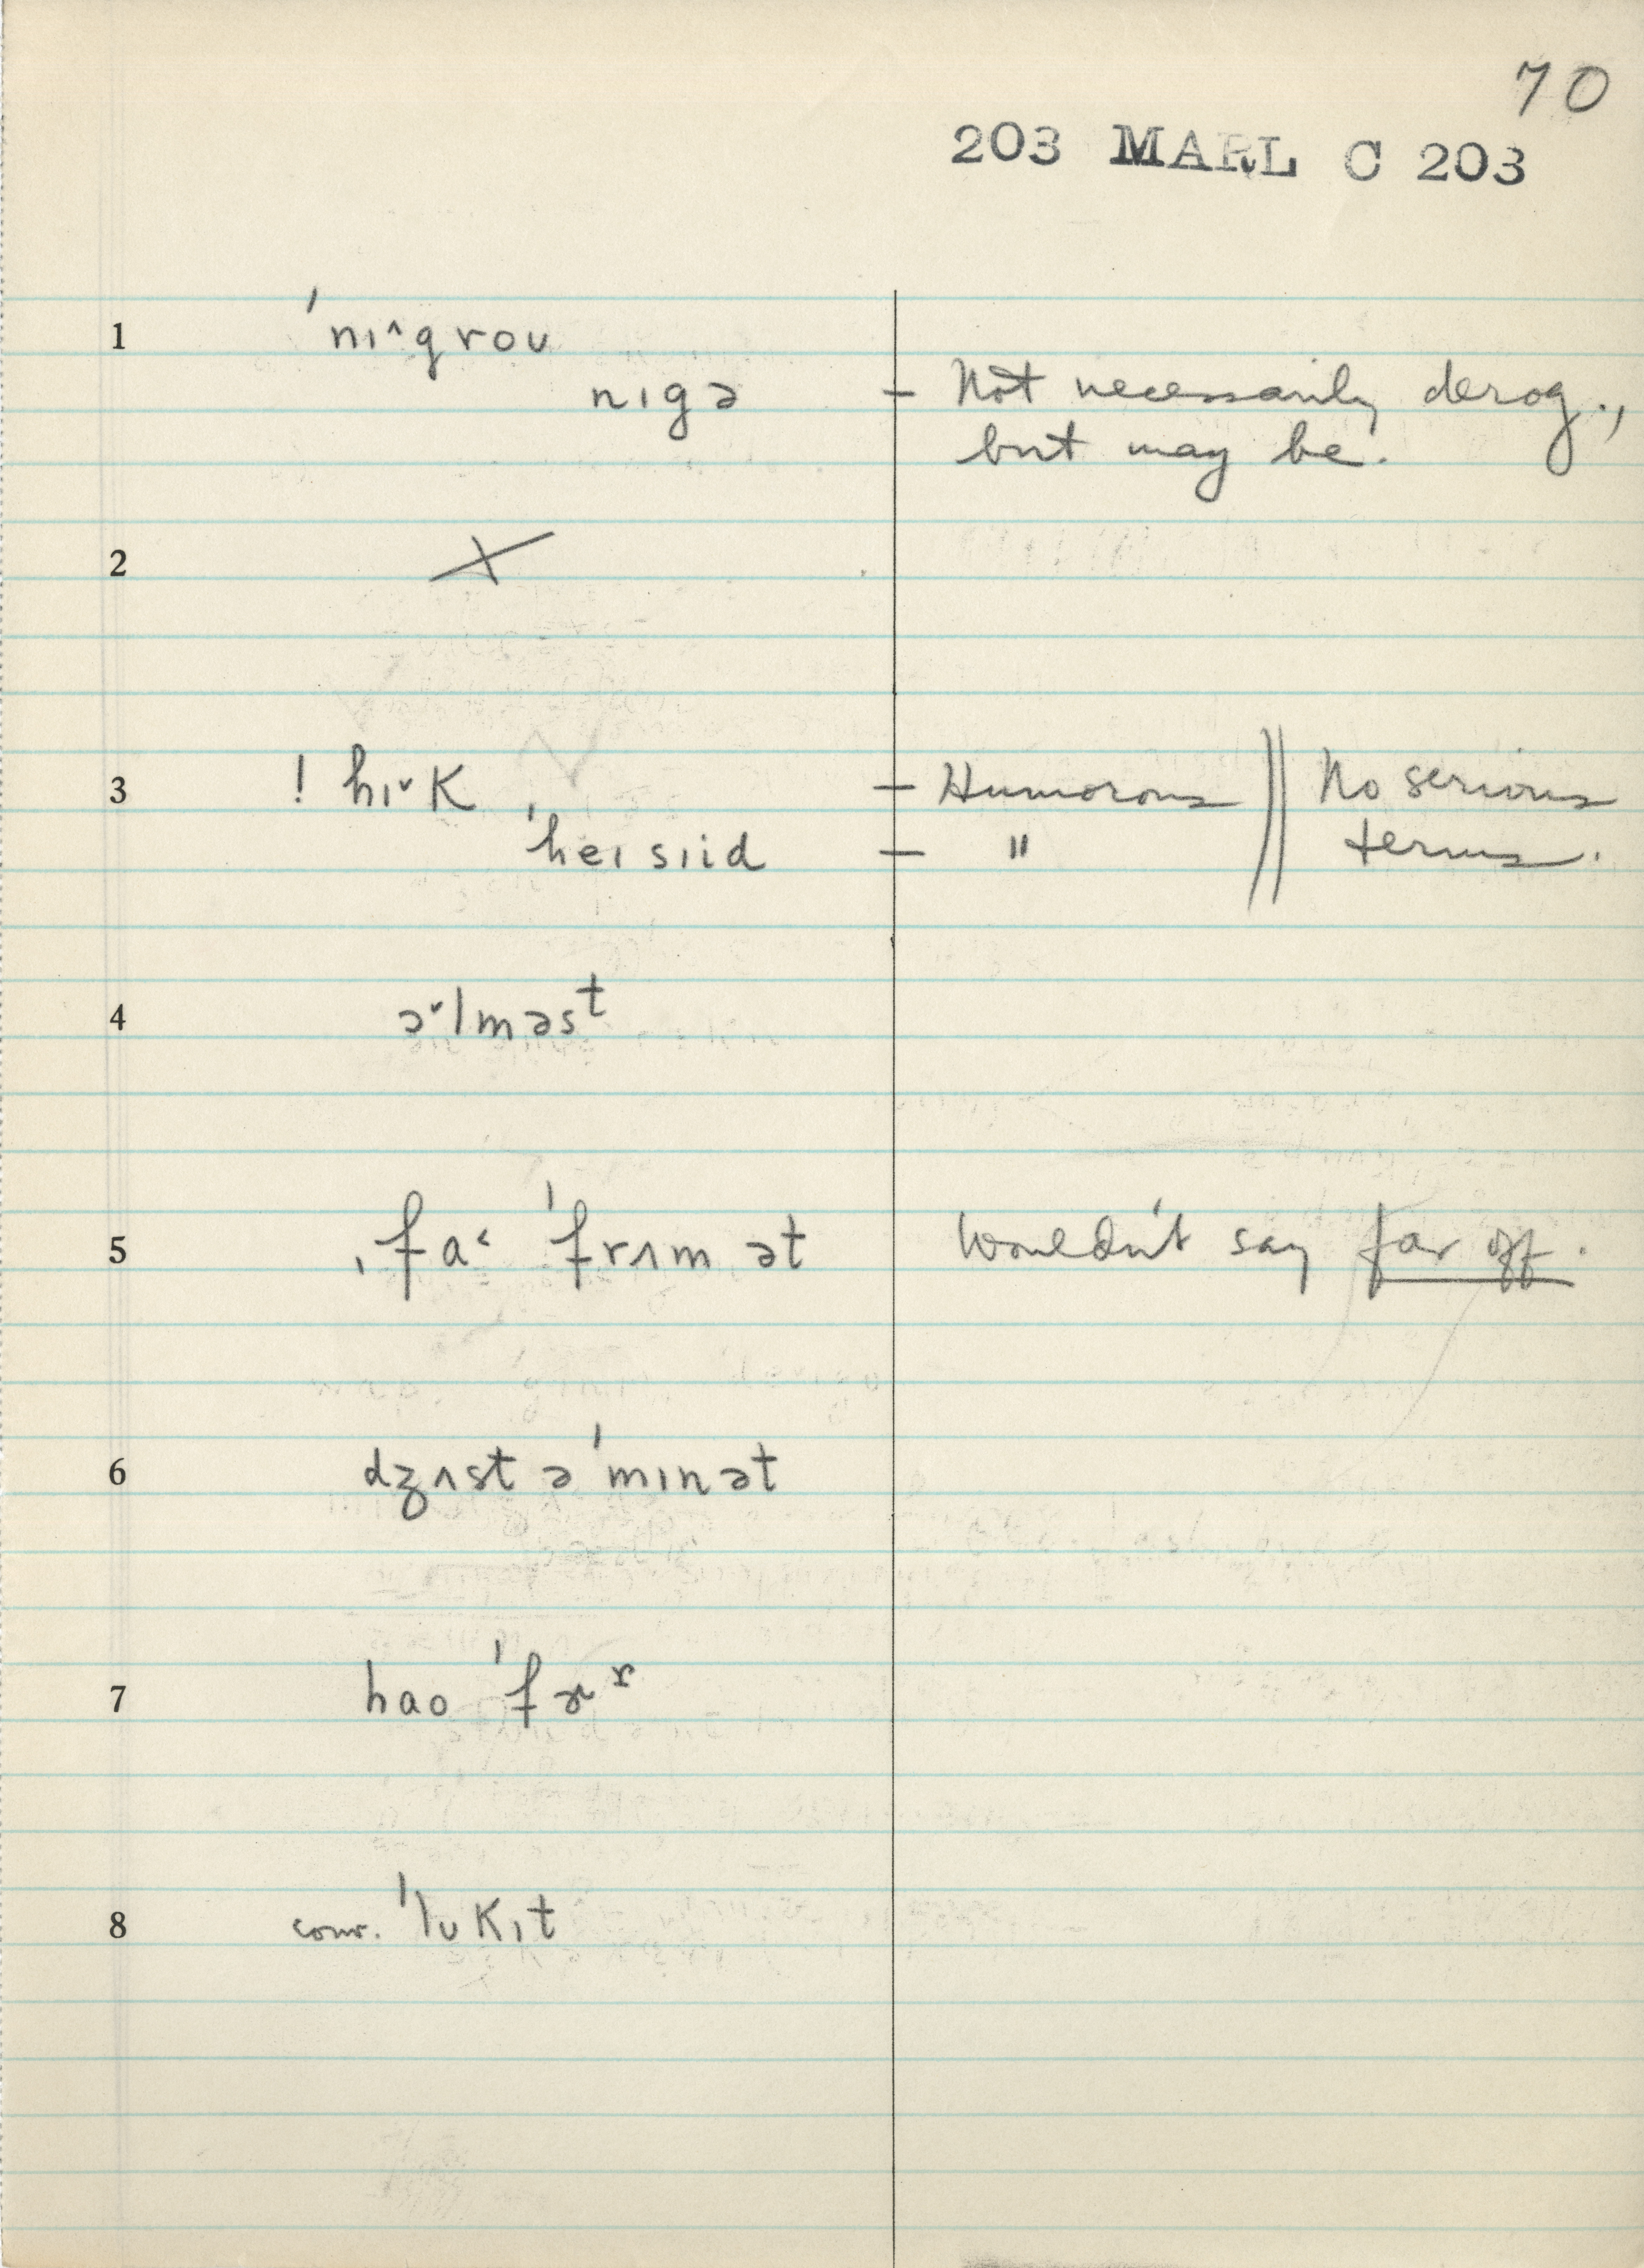 70
203 MARL C 203
1 ˈnɪ˄grou
nɪgə – Not necessarily derog.,
but may be.
2 X
3 ! hɪ˅k – Humorous || No serious
ˈheɪsɪid – " terms.
4 ɔ˅lməsᵗ
5 ˌfa˂ ˈfrʌm ət Wouldn't say far off.
6 dʒʌst ə ˈmɪnət
7 hao ˈfɚʳ
8 conv. ˈlʊkɪt